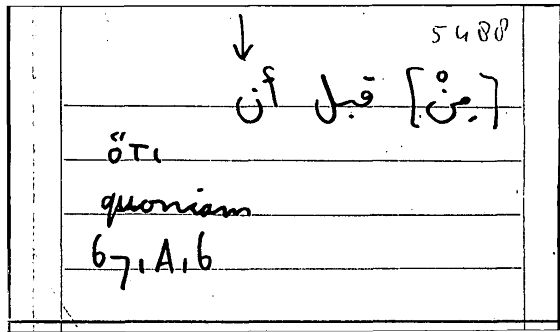 ↓ 5488
[مِنْ] قبل أن
ὅτι
quoniam
67,A,6